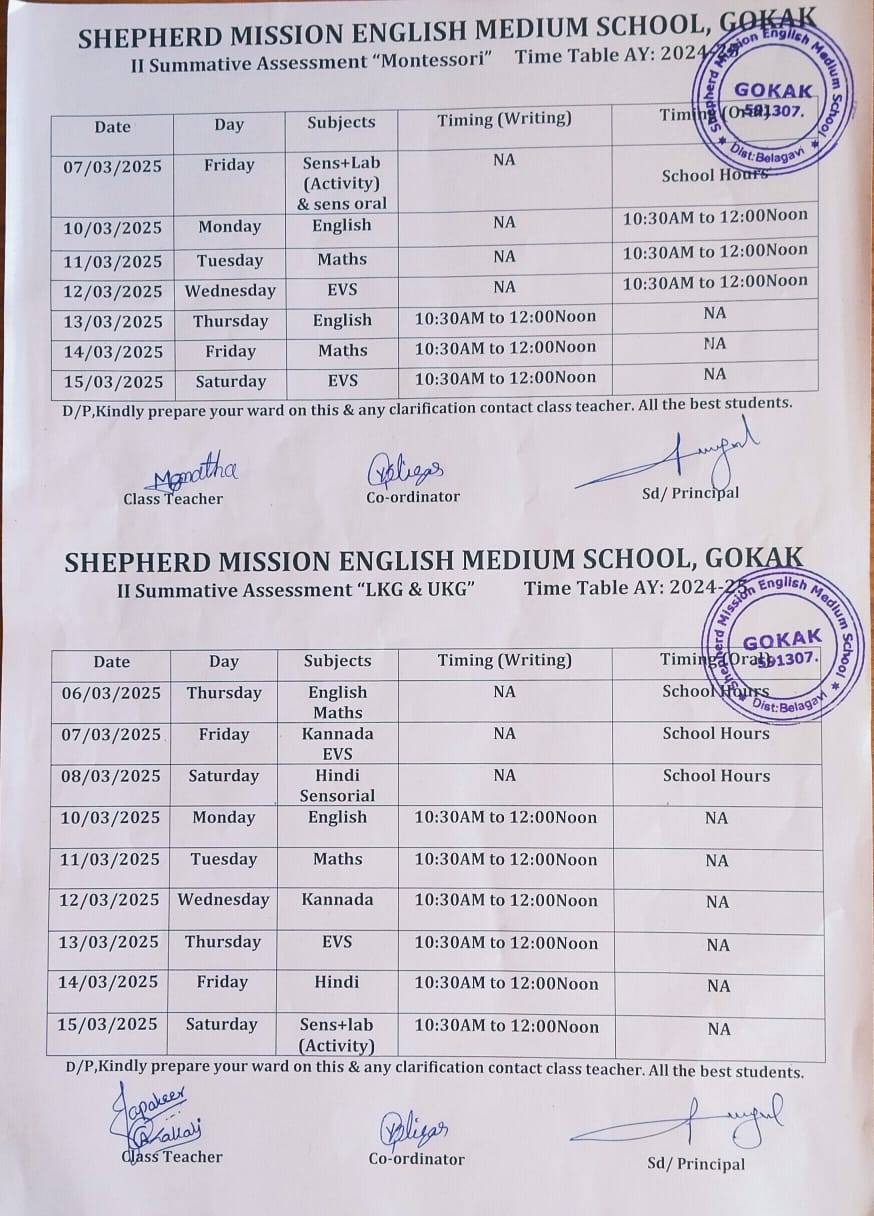 SHEPHERD MISSION ENGLISH MEDIUM SCHOOL, GOKAK
II Summative Assessment “Montessori” Time Table AY: 2024-25
Shepherd Mission English Medium School
GOKAK
591307.
★ Dist:Belagavi ★
Date Day Subjects Timing (Writing) Timing (Oral)
07/03/2025 Friday Sens+Lab NA School Hours
(Activity)
& sens oral
10/03/2025 Monday English NA 10:30AM to 12:00Noon
11/03/2025 Tuesday Maths NA 10:30AM to 12:00Noon
12/03/2025 Wednesday EVS NA 10:30AM to 12:00Noon
13/03/2025 Thursday English 10:30AM to 12:00Noon NA
14/03/2025 Friday Maths 10:30AM to 12:00Noon NA
15/03/2025 Saturday EVS 10:30AM to 12:00Noon NA
D/P,Kindly prepare your ward on this & any clarification contact class teacher. All the best students.
Class Teacher Co-ordinator Sd/ Principal
SHEPHERD MISSION ENGLISH MEDIUM SCHOOL, GOKAK
II Summative Assessment “LKG & UKG” Time Table AY: 2024-25
Shepherd Mission English Medium School
GOKAK
591307.
★ Dist:Belagavi ★
Date Day Subjects Timing (Writing) Timing (Oral)
06/03/2025 Thursday English NA School Hours
Maths
07/03/2025 Friday Kannada NA School Hours
EVS
08/03/2025 Saturday Hindi NA School Hours
Sensorial
10/03/2025 Monday English 10:30AM to 12:00Noon NA
11/03/2025 Tuesday Maths 10:30AM to 12:00Noon NA
12/03/2025 Wednesday Kannada 10:30AM to 12:00Noon NA
13/03/2025 Thursday EVS 10:30AM to 12:00Noon NA
14/03/2025 Friday Hindi 10:30AM to 12:00Noon NA
15/03/2025 Saturday Sens+lab 10:30AM to 12:00Noon NA
(Activity)
D/P,Kindly prepare your ward on this & any clarification contact class teacher. All the best students.
Class Teacher Co-ordinator Sd/ Principal